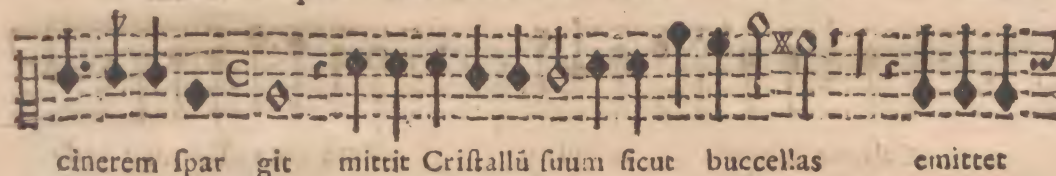 cinerem ſpar git mittit Criſtallū ſuum ſicut buccellas emittet